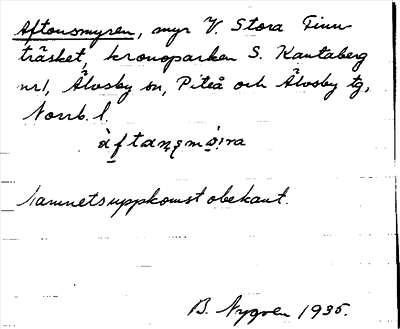 Aftonsmyren, myr V. Stora Finn-
träsket, kronoparken S. Kantaberg
nr 1, Älvsby sn, Piteå och Älvsby tg,
Norrb. l.
Namnets uppkomst obekant.
B. Nygren 1935.